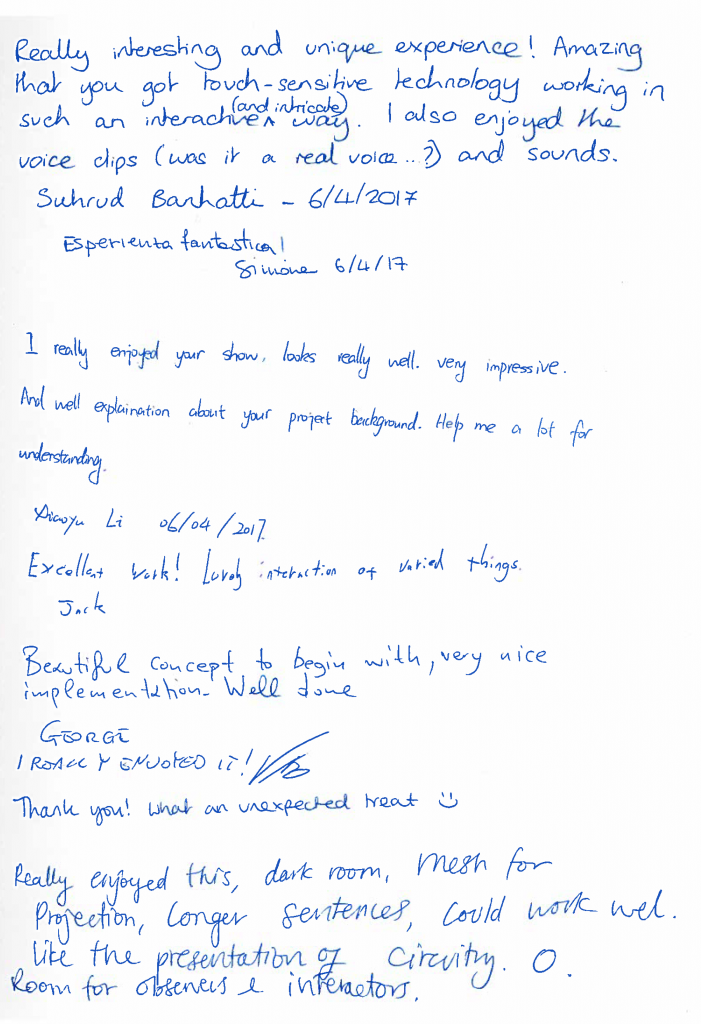 Really interesting and unique experience! Amazing
that you got touch-sensitive technology working in
such an interactive (and intricate) way. I also enjoyed the
voice clips (was it a real voice...?) and sounds.
Suhrud Banhatti - 6/4/2017
Esperienta fantastica!
Simone 6/4/17
I really enjoyed your show, looks really well. very impressive.
And well explaination about your project background. Help me a lot for
understanding.
Xiaoyu Li 06/04/2017.
Excellent work! Lovely interaction of varied things.
Jack
Beautiful concept to begin with, very nice
implementation. Well done
GEORGE
I REALLY ENJOYED IT!
Thank you! What an unexpected treat
Really enjoyed this, dark room, mesh for
Projection, Longer sentences, could work wel.
Like the presentation of circuitry. O.
Room for observers & interactors.